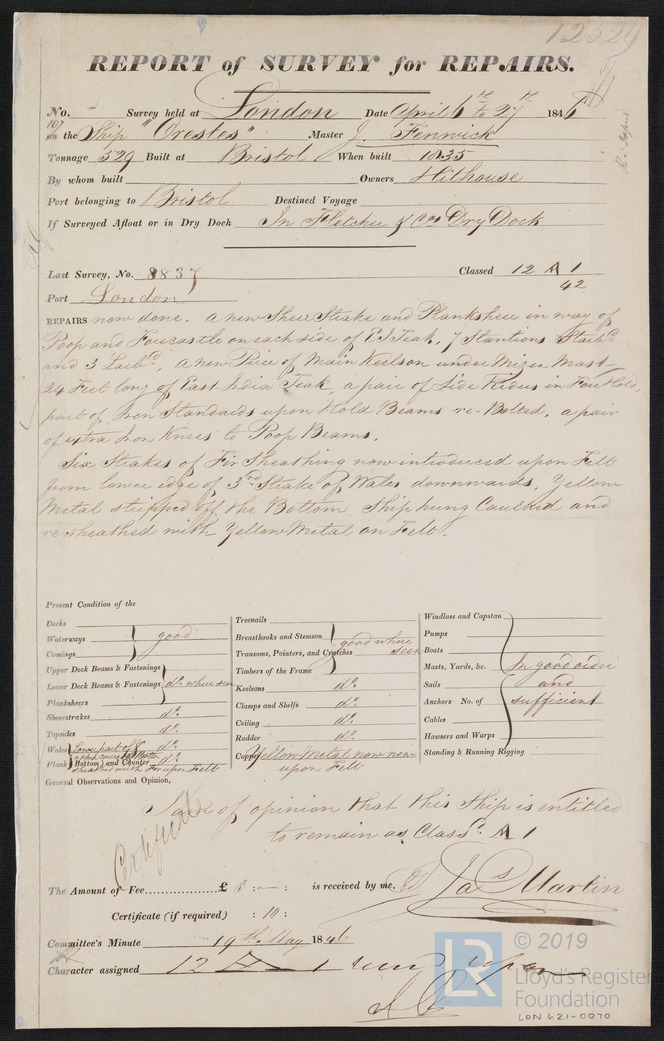 12529
REPORT of SURVEY for REPAIRS.
No. Survey held at London Date April 6th to 27th 1846
107 on the Ship "Orestes" Master J. Fenwick
Tonnage 529 Built at Bristol When built 1835
By whom built Owners Hilhouse
Port belonging to Bristol Destined Voyage
If Surveyed Afloat or in Dry Dock In Fletcher & Cos Dry Dock
Last Survey, No. 8837 Classed 12 A 1
42
Port London
REPAIRS now done. a new Sheer Strake and Planksheer in way of
Poop and Forecastle on each side of E. I. Teak, 7 Stantions Starbd
and 3 Larbd, a new Piece of Main Keelson under Mizen Mast
24 Feet long of East India Teak a pair of Side Riders in Fore Hold
part of Iron Standards upon Hold Beams re-Bolted, a pair
of extra Iron Knees to Poop Beams.
Six Strakes of Fir Sheathing now introduced upon Felt
from lower edge of 3rd Strake of Wales downwards. Yellow
Metal stripped off the Bottom, Ship hung Caulked and
re sheathed with Yellow Metal on Felt.
Present Condition of the
Decks
Waterways good
Comings
Upper Deck Beams & Fastenings
Lower Deck Beams & Fastenings do where seen
Planksheers
Sheerstrakes do
Topsides do
Wales Lower part of & do
Plank (Bottom) and Counter do
sheathed with Fir upon Felt
Treenails
Breasthooks and Stemson good where seen
Transoms, Pointers, and Crutches
Timbers of the Frame
Keelsons do
Clamps and Shelfs do
Ceiling do
Rudder do
Copper Yellow Metal now new
upon Felt
Windlass and Capstan
Pumps
Boats
Masts, Yards, &c. In good order
Sails and
Anchors No. of sufficient
Cables
Hawsers and Warps
Standing & Running Rigging
General Observations and Opinion,
I am of opinion that this Ship is entitled
to remain as Classd A 1
Certificate
The Amount of Fee £ : — : is received by me, Jas Martin
Certificate (if required) : 10 :
Committee's Minute 19th May 1846
Character assigned 12 A 1
© 2019
LR
Lloyd's Register
Foundation
LON 621-0070